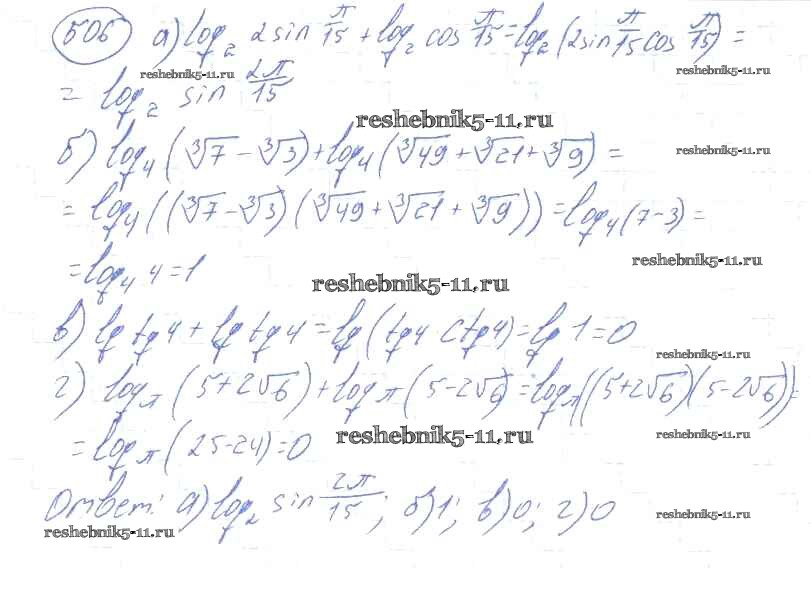 506 а) log₂ 2sin π/15 + log₂ cos π/15 = log₂ (2sin π/15 cos π/15) =
reshebnik5-11.ru reshebnik5-11.ru
= log₂ sin 2π/15
reshebnik5-11.ru
б) log₄(∛7 - ∛3) + log₄(∛49 + ∛21 + ∛9) =
reshebnik5-11.ru
= log₄((∛7 - ∛3)(∛49 + ∛21 + ∛9)) = log₄(7-3) =
reshebnik5-11.ru
= log₄ 4 = 1
reshebnik5-11.ru
в) lg tg4 + lg tg4 = lg(tg4 ctg4) = lg 1 = 0
reshebnik5-11.ru
г) logπ(5+2√6) + logπ(5-2√6) = logπ((5+2√6)(5-2√6)) =
= logπ(25-24) = 0
reshebnik5-11.ru reshebnik5-11.ru
Ответ: а) log₂ sin 2π/15; б) 1; в) 0; г) 0
reshebnik5-11.ru reshebnik5-11.ru